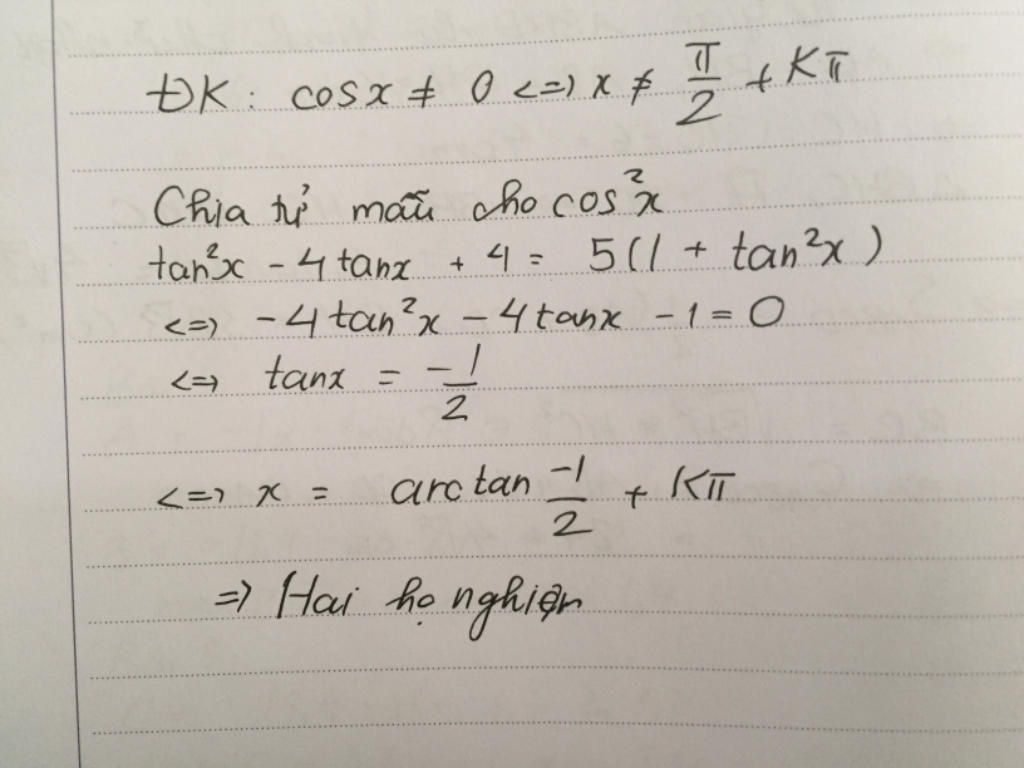 ĐK: cosx ≠ 0 <=> x ≠ π/2 + Kπ
Chia tử mẫu cho cos²x
tan²x - 4tanx + 4 = 5(1 + tan²x)
<=> -4tan²x - 4tanx - 1 = 0
<=> tanx = -1/2
<=> x = arctan -1/2 + Kπ
=> Hai họ nghiệm